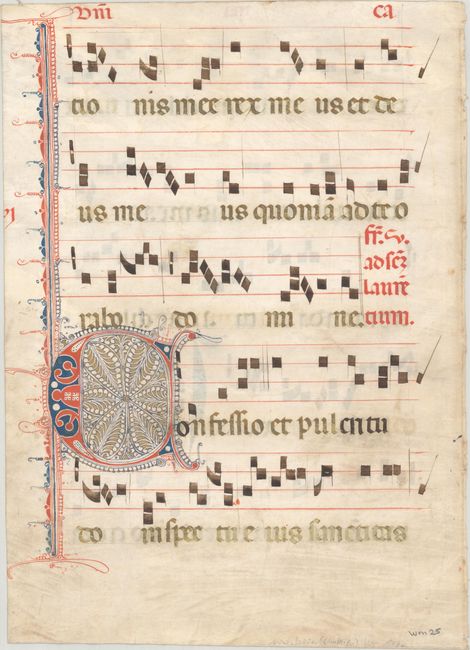 Dm̄i ca
tio nis mee rex me us et de
us me us quoniā ad te o
rabo do mi ne.
ff. v.
ad scz̄
laurē
cium.
Confessio et pulcritu
do in spec tu e ius sanctitas
wm 25